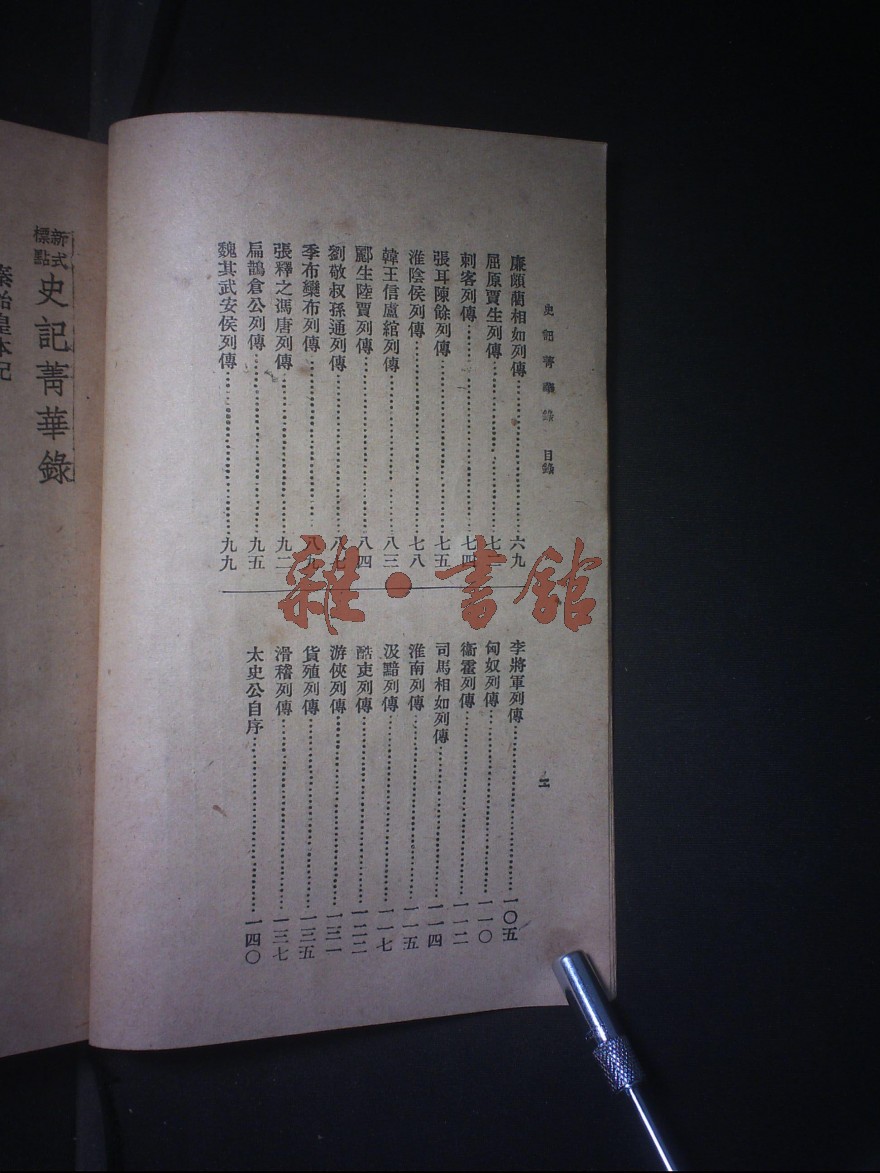 史記菁華錄 目錄
廉頗藺相如列傳……六九
屈原賈生列傳……七
刺客列傳……七四
張耳陳餘列傳……七五
淮陰侯列傳……七八
韓王信盧綰列傳……八三
酈生陸賈列傳……八四
劉敬叔孫通列傳……八七
季布欒布列傳……八九
張釋之馮唐列傳……九二
扁鵲倉公列傳……九五
魏其武安侯列傳……九九
李將軍列傳……一〇五
匈奴列傳……一一〇
衞霍列傳……一一二
司馬相如列傳……一一四
淮南列傳……一一五
汲黯列傳……一一七
酷吏列傳……一二二
游俠列傳……一三一
貨殖列傳……一三五
滑稽列傳……一三七
太史公自序……一四〇
新式標點 史記菁華錄
秦始皇本記
雜·書館